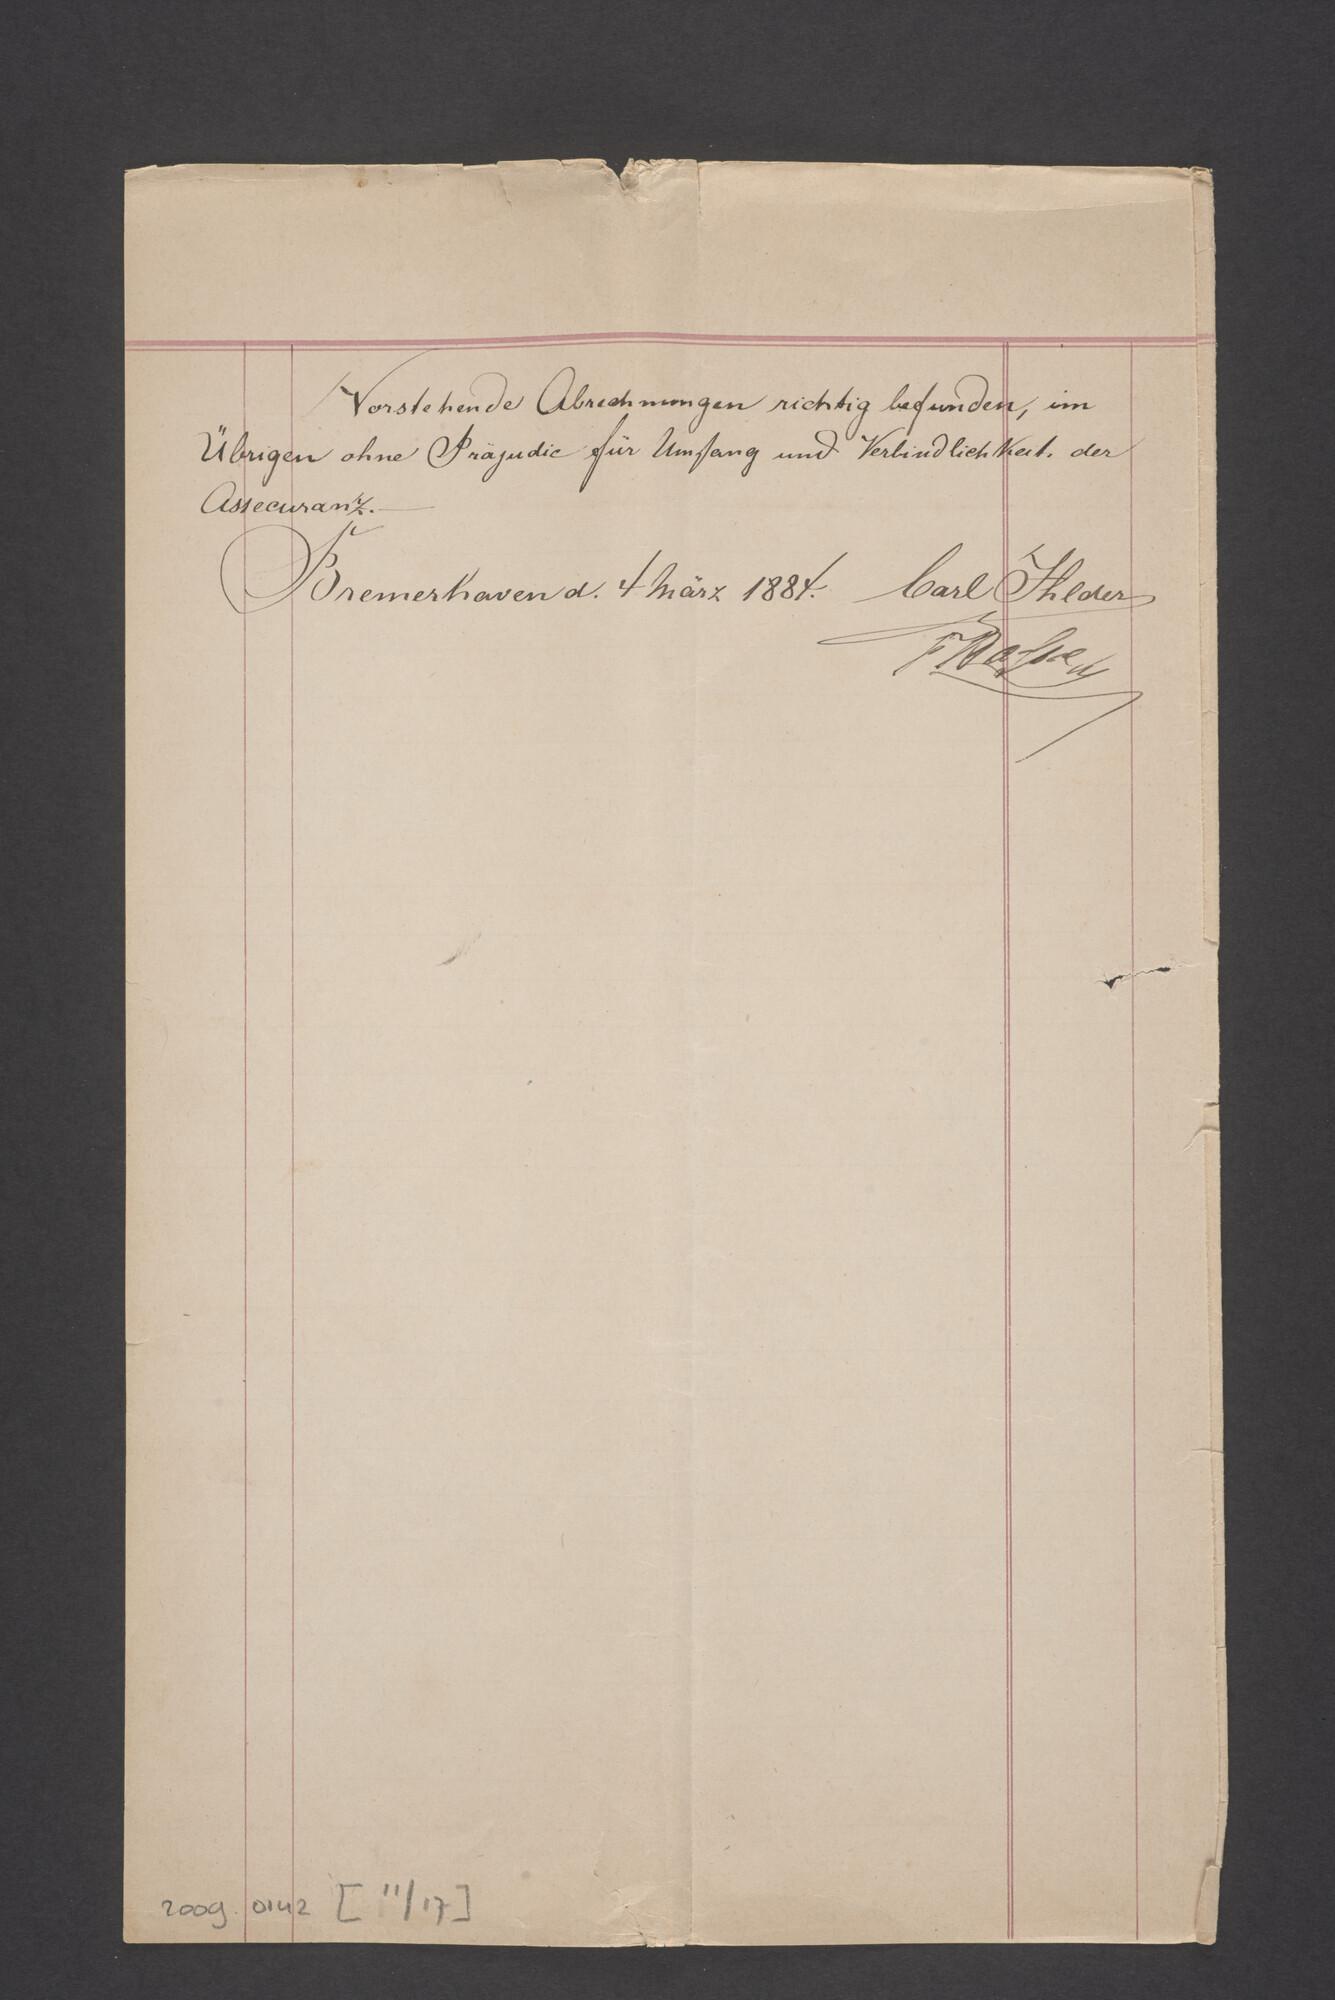 Vorstehende Abrechnungen richtig befunden, im
Übrigen ohne Präjudic für Umfang und Verbindlichkeit. der
Assecuranz.
Bremerhaven d. 4 März 1884. Carl Ihlder
F
2009. 0142 [11/17]